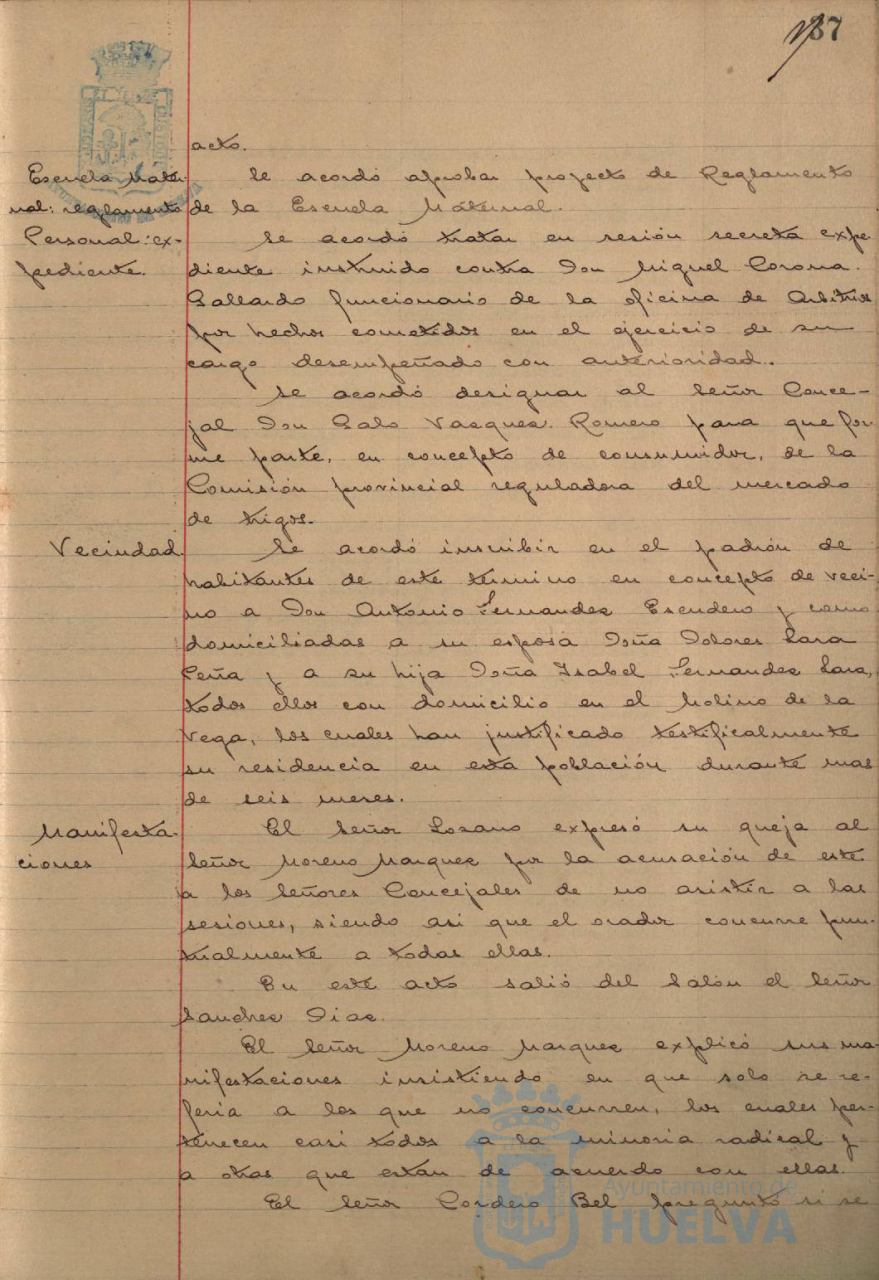 187
acto.
Escuela Mater-
nal: reglamento
Se acordó aprobar proyecto de Reglamento
de la Escuela Maternal.
Personal: ex-
pediente.
Se acordó tratar en sesión secreta expe-
diente instruido contra Don Miguel Corona
Gallardo funcionario de la oficina de Arbitrios
por hechos cometidos en el ejercicio de su
cargo desempeñado con anterioridad.
Se acordó designar al Señor Conce-
jal Don Galo Vazquez Romero para que for-
me parte, en concepto de consumidor, de la
Comisión provincial reguladora del mercado
de trigos.
Vecindad.
Se acordó inscribir en el padrón de
habitantes de este termino en concepto de veci-
no a Don Antonio Fernandez Escudero y como
domiciliadas a su esposa Doña Dolores Lara
Peña y a su hija Doña Isabel Fernandez Lara,
todos ellos con domicilio en el Molino de la
Vega, los cuales han justificado testificalmente
su residencia en esta población durante mas
de seis meses.
Manifesta-
ciones
El Señor Lozano expresó su queja al
Señor Moreno Marquez por la acusación de este
a los Señores Concejales de no asistir a las
sesiones, siendo asi que el orador concurre pun-
tualmente a todas ellas.
En este acto salió del Salón el Señor
Sanchez Diaz.
El Señor Moreno Marquez explicó sus ma-
nifestaciones insistiendo en que solo se re-
feria a los que no concurren, los cuales per-
tenecen casi todos a la minoria radical y
a otras que están de acuerdo con ellas.
El Señor Cordero Bel preguntó si se
Ayuntamiento de
HUELVA